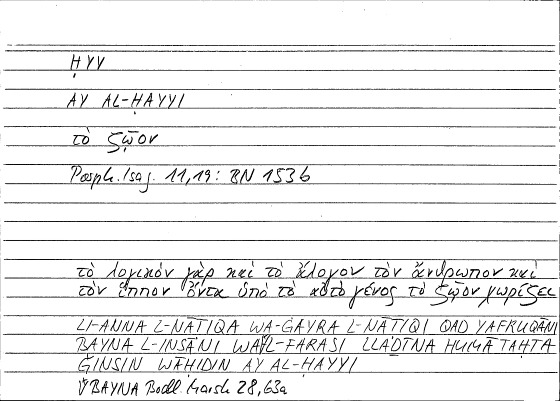 ḤYV
AY AL-ḤAYYI
τὸ ζῷον
Porph. Isag. 11,19: BN 153b
τὸ λογικὸν γὰρ καὶ τὸ ἄλογον τὸν ἄνθρωπον καὶ
τὸν ἵππον ὄντα ὑπὸ τὸ αὐτὸ γένος τὸ ζῷον χωρίζει
LI-ANNA L-NĀṬIQA WA-ĠAYRA L-NĀṬIQI QAD YAFRUQĀNI
BAYNA L-INSĀNI WA-L-FARASI LLAḎĪNA HUMĀ TAḤTA
ĠINSIN WĀḤIDIN AY AL-ḤAYYI
BAYNA Bodl. Marsh 28,63a